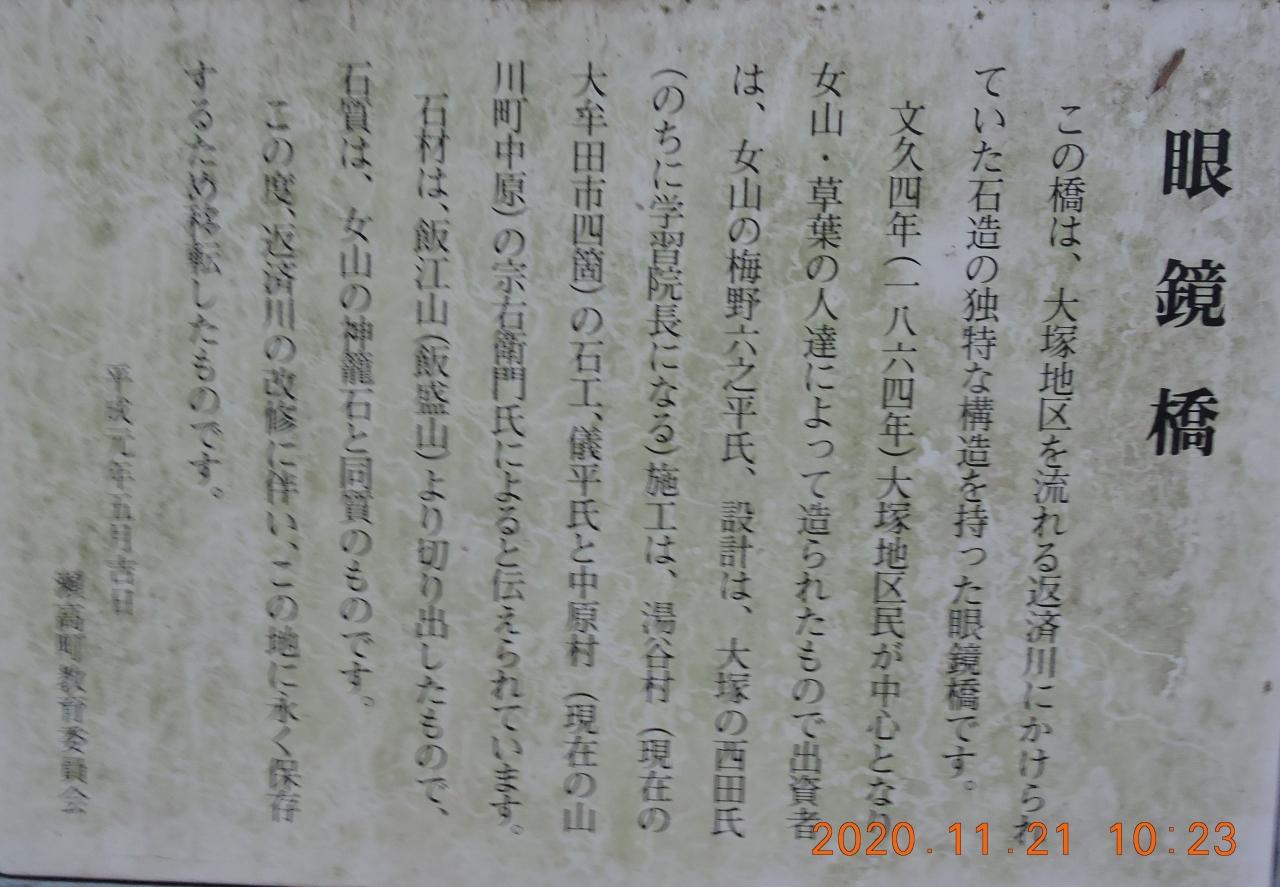 眼鏡橋
この橋は、大塚地区を流れる返済川にかけられ
ていた石造の独特な構造を持った眼鏡橋です。
文久四年(一八六四年)大塚地区民が中心となり
女山・草葉の人達によって造られたもので出資者
は、女山の梅野六之平氏、設計は、大塚の西田氏
(のちに学習院長になる)施工は、湯谷村(現在の
大牟田市四箇)の石工、儀平氏と中原村(現在の山
川町中原)の宗右衛門氏によると伝えられています。
石材は、飯江山(飯盛山)より切り出したもので、
石質は、女山の神籠石と同質のものです。
この度、返済川の改修に伴い、この地に永く保存
するため移転したものです。
平成元年五月吉日
瀬高町教育委員会
2020.11.21 10:23